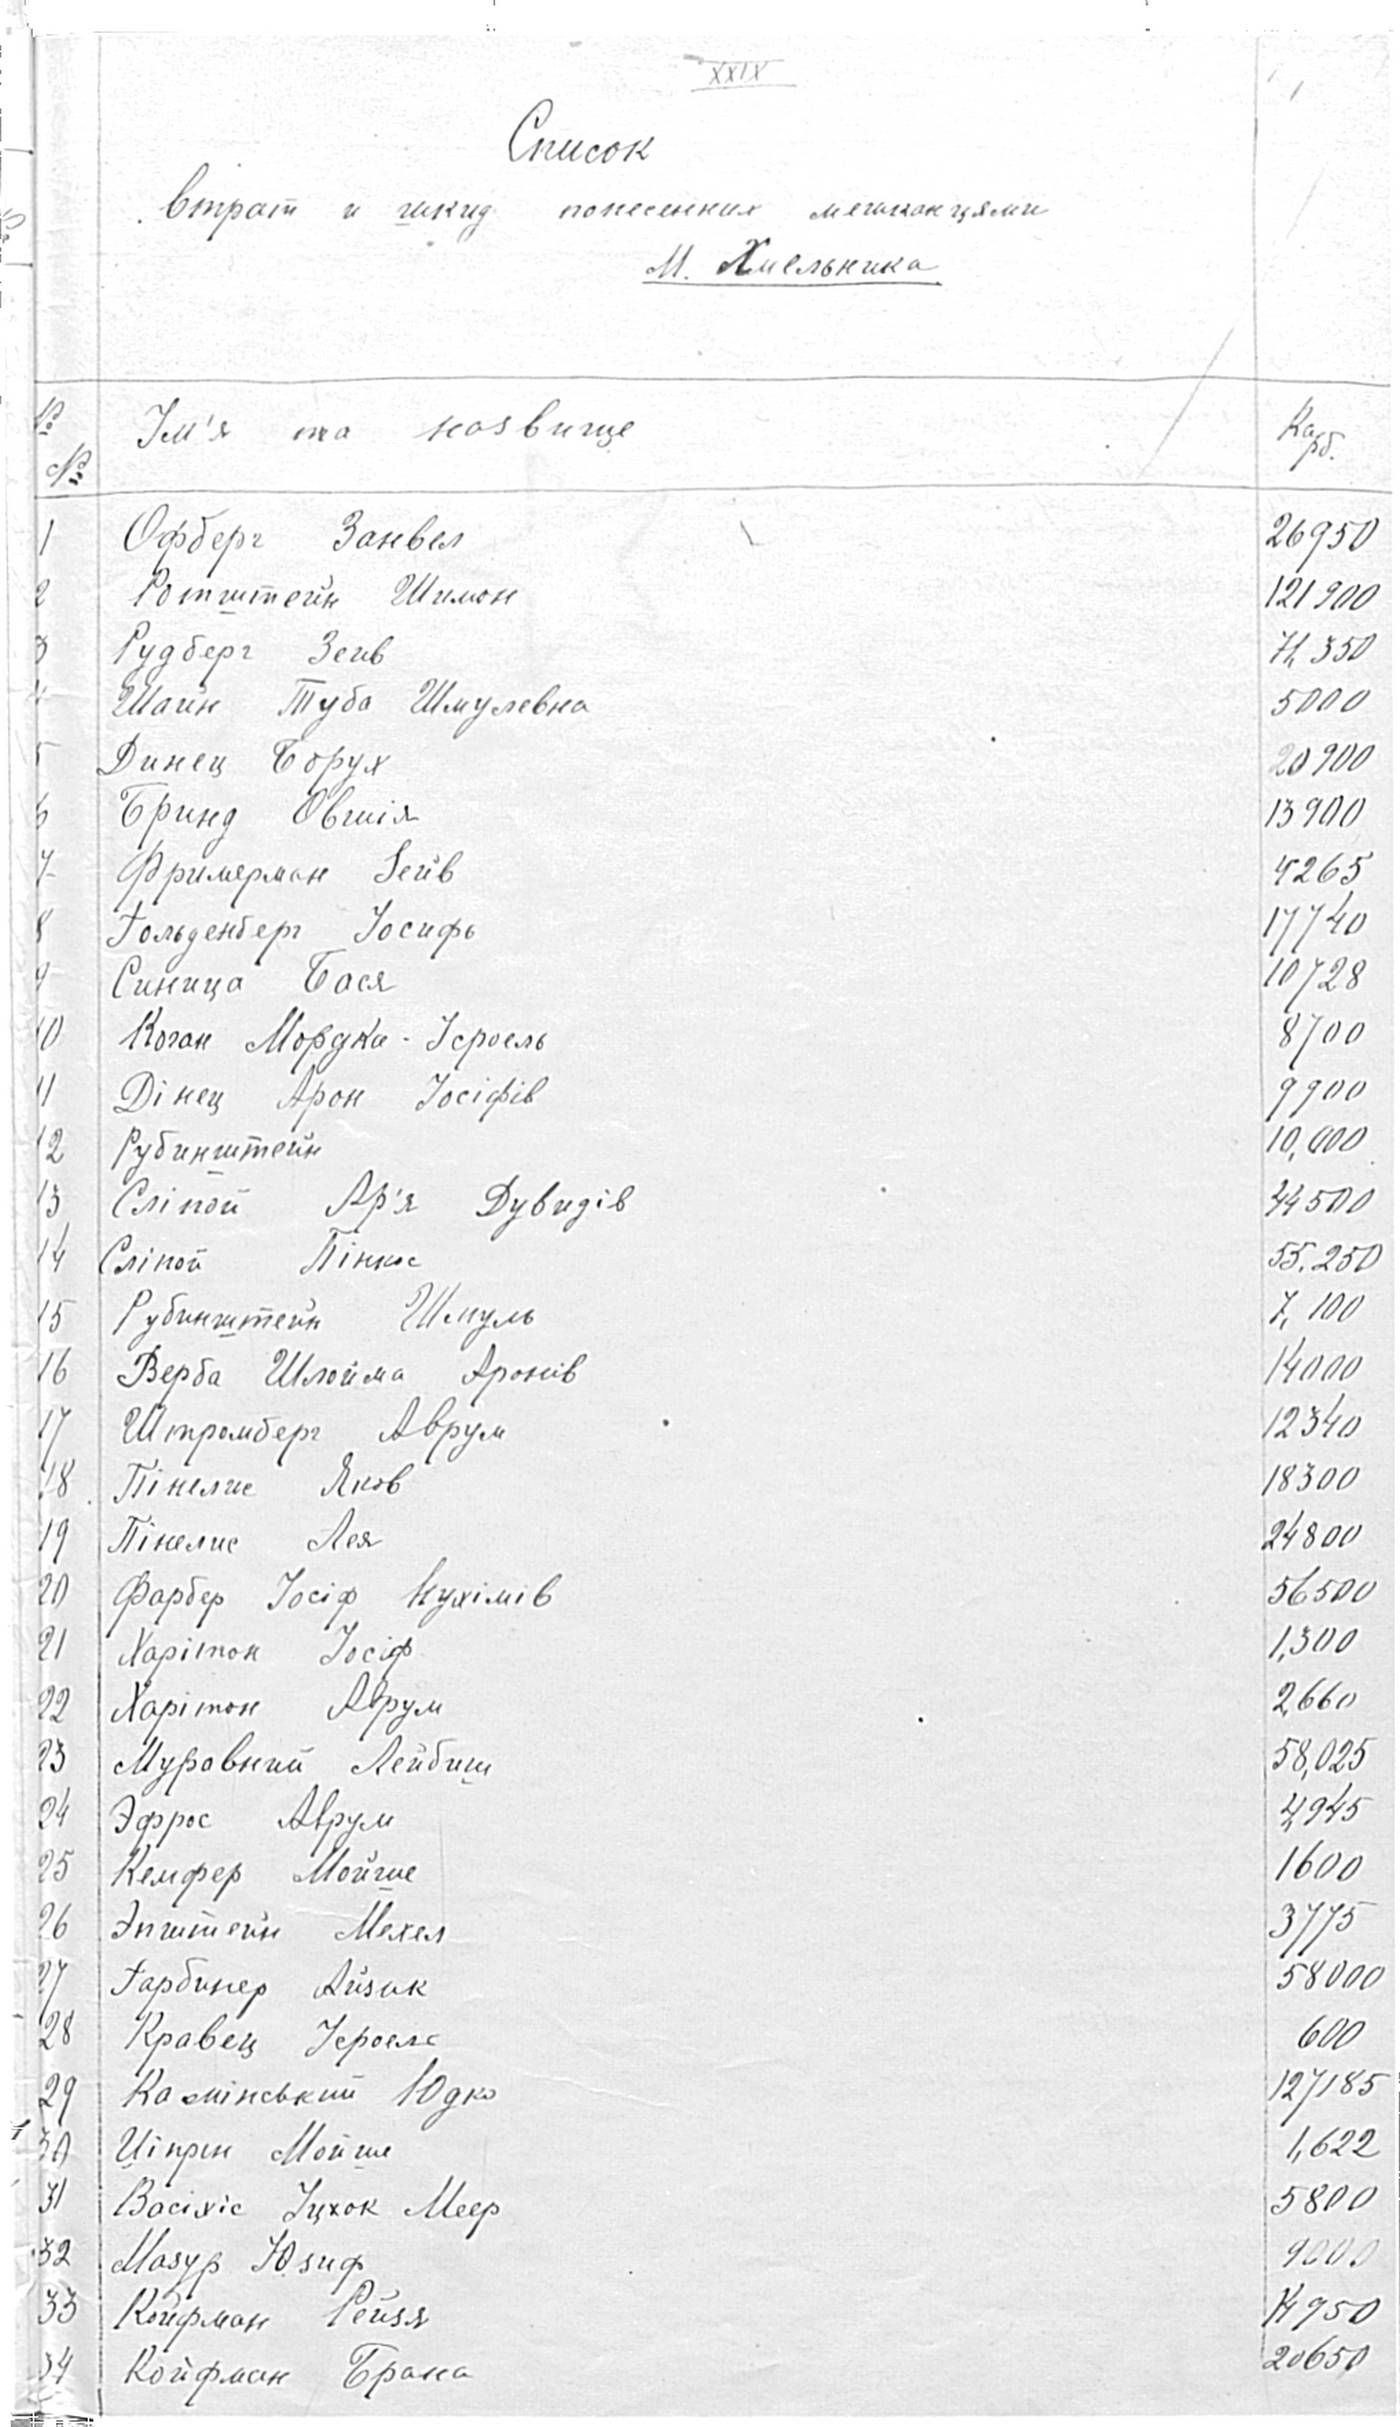 XXIX
Список
втрат и шкид понесенних мешканцями
м. Хмельника
№ Им'я та назвище Карб.
№
1 Офберг Занвел 26950
2 Ротштейн Шимон 121900
3 Рудберг Зеив 71,350
4 Шаин Туба Шмулевна 5000
5 Динец Борух 20900
6 Бринд Овшія 13900
7 Фримерман Зейв 4265
8 Гольденберг Іосифь 17740
9 Синица Бася 10728
10 Коган Мордка-Ісроель 8700
11 Дінец Арон Іосіфів 9900
12 Рубинштейн 10,000
13 Сліпой Ар'я Дувидів 44500
14 Сліпой Пінкос 55.250
15 Рубинштейн Шмуль 7,100
16 Верба Шлойма Аронів 14000
17 Штромберг Аврум 12340
18 Пінелис Яков 18300
19 Пінелис Лея 24800
20 Фарбер Іосіф Нухімів 56500
21 Харітон Іосіф 1,300
22 Харітон Аврум 2,660
23 Муровний Лейбиш 58,025
24 Эфрос Аврум 4,945
25 Кемфер Мойше 1600
26 Эпштейн Мехел 3775
27 Гарбинер Айзик 58000
28 Кравец Ісроель 600
29 Камінський Юдко 127185
30 Ціпрін Мойше 1,622
31 Васіліс Іцхок Меер 5800
32 Мазур Юзиф 9000
33 Койфман Рейзя 14950
34 Койфман Брана 20650